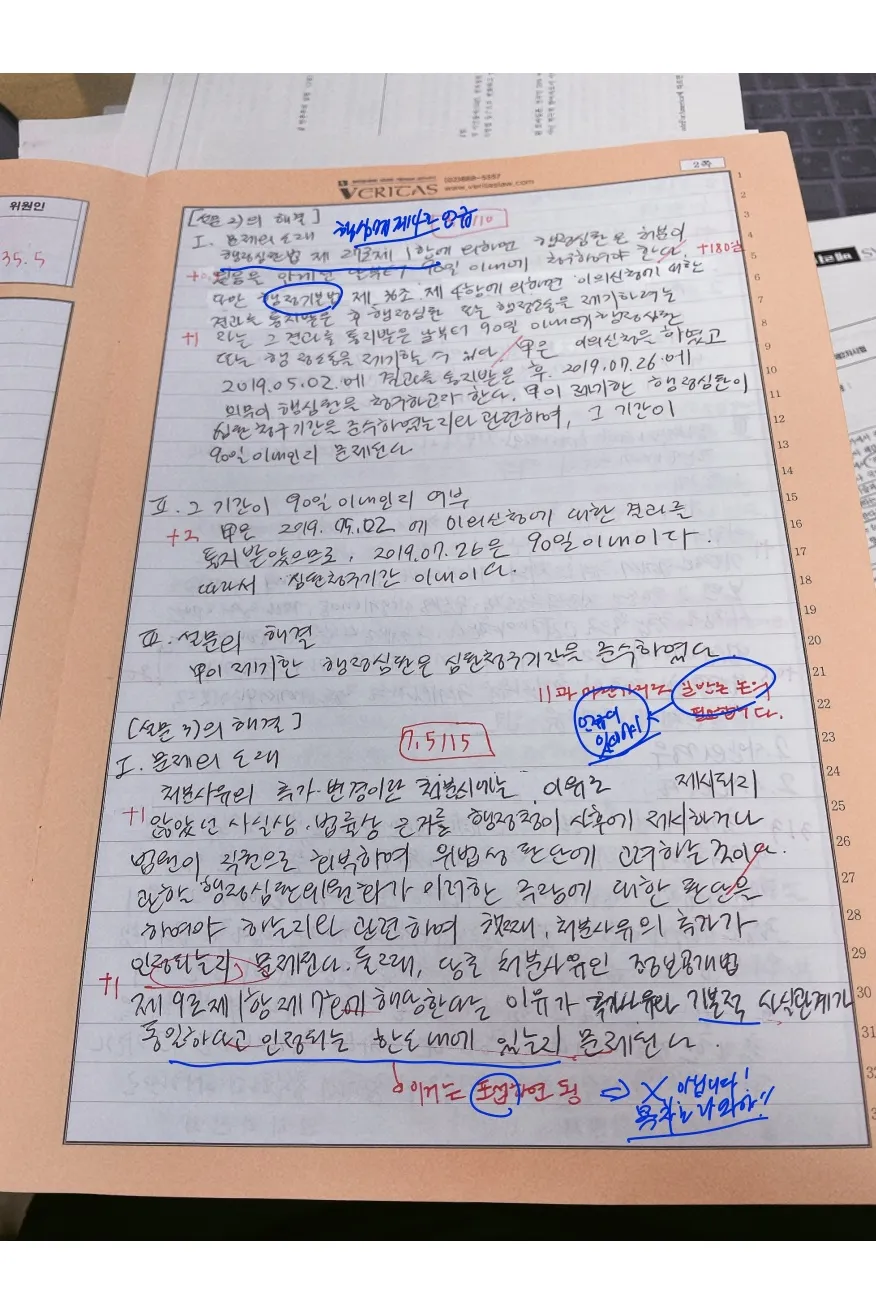 위원인
35.5
VERITAS (02)888-5557
www.veritaslaw.com
2쪽
[설문 2)의 해결]
/10
I. 문제의 소재
행정심판법 제 27조 제 1항에 의하면 행정심판은 처분이
있음을 알게 된 날부터 90일 이내에 청구하여야 한다. +180일
다만 행정기본법 제 36조 제 4항에 의하면 이의신청에 대한
결과를 통지받은 후 행정심판 또는 행정소송을 제기하려는
+1 자는 그 결과를 통지받은 날부터 90일 이내에 행정심판
또는 행정소송을 제기할 수 있다. 甲은 이의신청을 하였고
2019.05.02.에 결과를 통지받은 후. 2019.07.26.에
행심판을 청구하고자 한다. 甲이 제기한 행정심판이
심판청구기간을 준수하였는지와 관련하여, 그 기간이
90일 이내인지 문제된다
II. 그 기간이 90일 이내인지 여부
+2 甲은 2019. 05.02 에 이의신청에 대한 결과를
통지받았으므로, 2019.07.26은 90일 이내이다.
따라서 심판청구기간 이내이다.
III. 설문의 해결
甲이 제기한 행정심판은 심판청구기간을 준수하였다.
일반론 논의
[설문 3)의 해결]
7.5/15
I. 문제의 소재
처분사유의 추가·변경이란 처분시에는 이유로 제시되지
+1 않았던 사실상·법률상 근거를 행정청이 사후에 제시하거나
법원이 직권으로 회복하여 위법성 판단에 고려하는 것이다.
관할 행정심판위원회가 이러한 주장에 대한 판단을
하여야 하는지와 관련하여 첫째, 처분사유의 추가가
인정되는지 문제된다. 둘째, 당초 처분사유인 정보공개법
+1 제 9조 제 1항 제 7호에 해당한다는 이유가 추가사유와 기본적 사실관계가
동일하다고 인정되는 한도 내에 있는지 문제된다.
이거는 포섭하면 됨 ⇒ X 아닙니다!
목차는 나와야!!
1
2
3
4
5
6
7
8
9
10
11
12
13
14
15
16
17
18
19
20
21
22
23
24
25
26
27
28
29
30
31